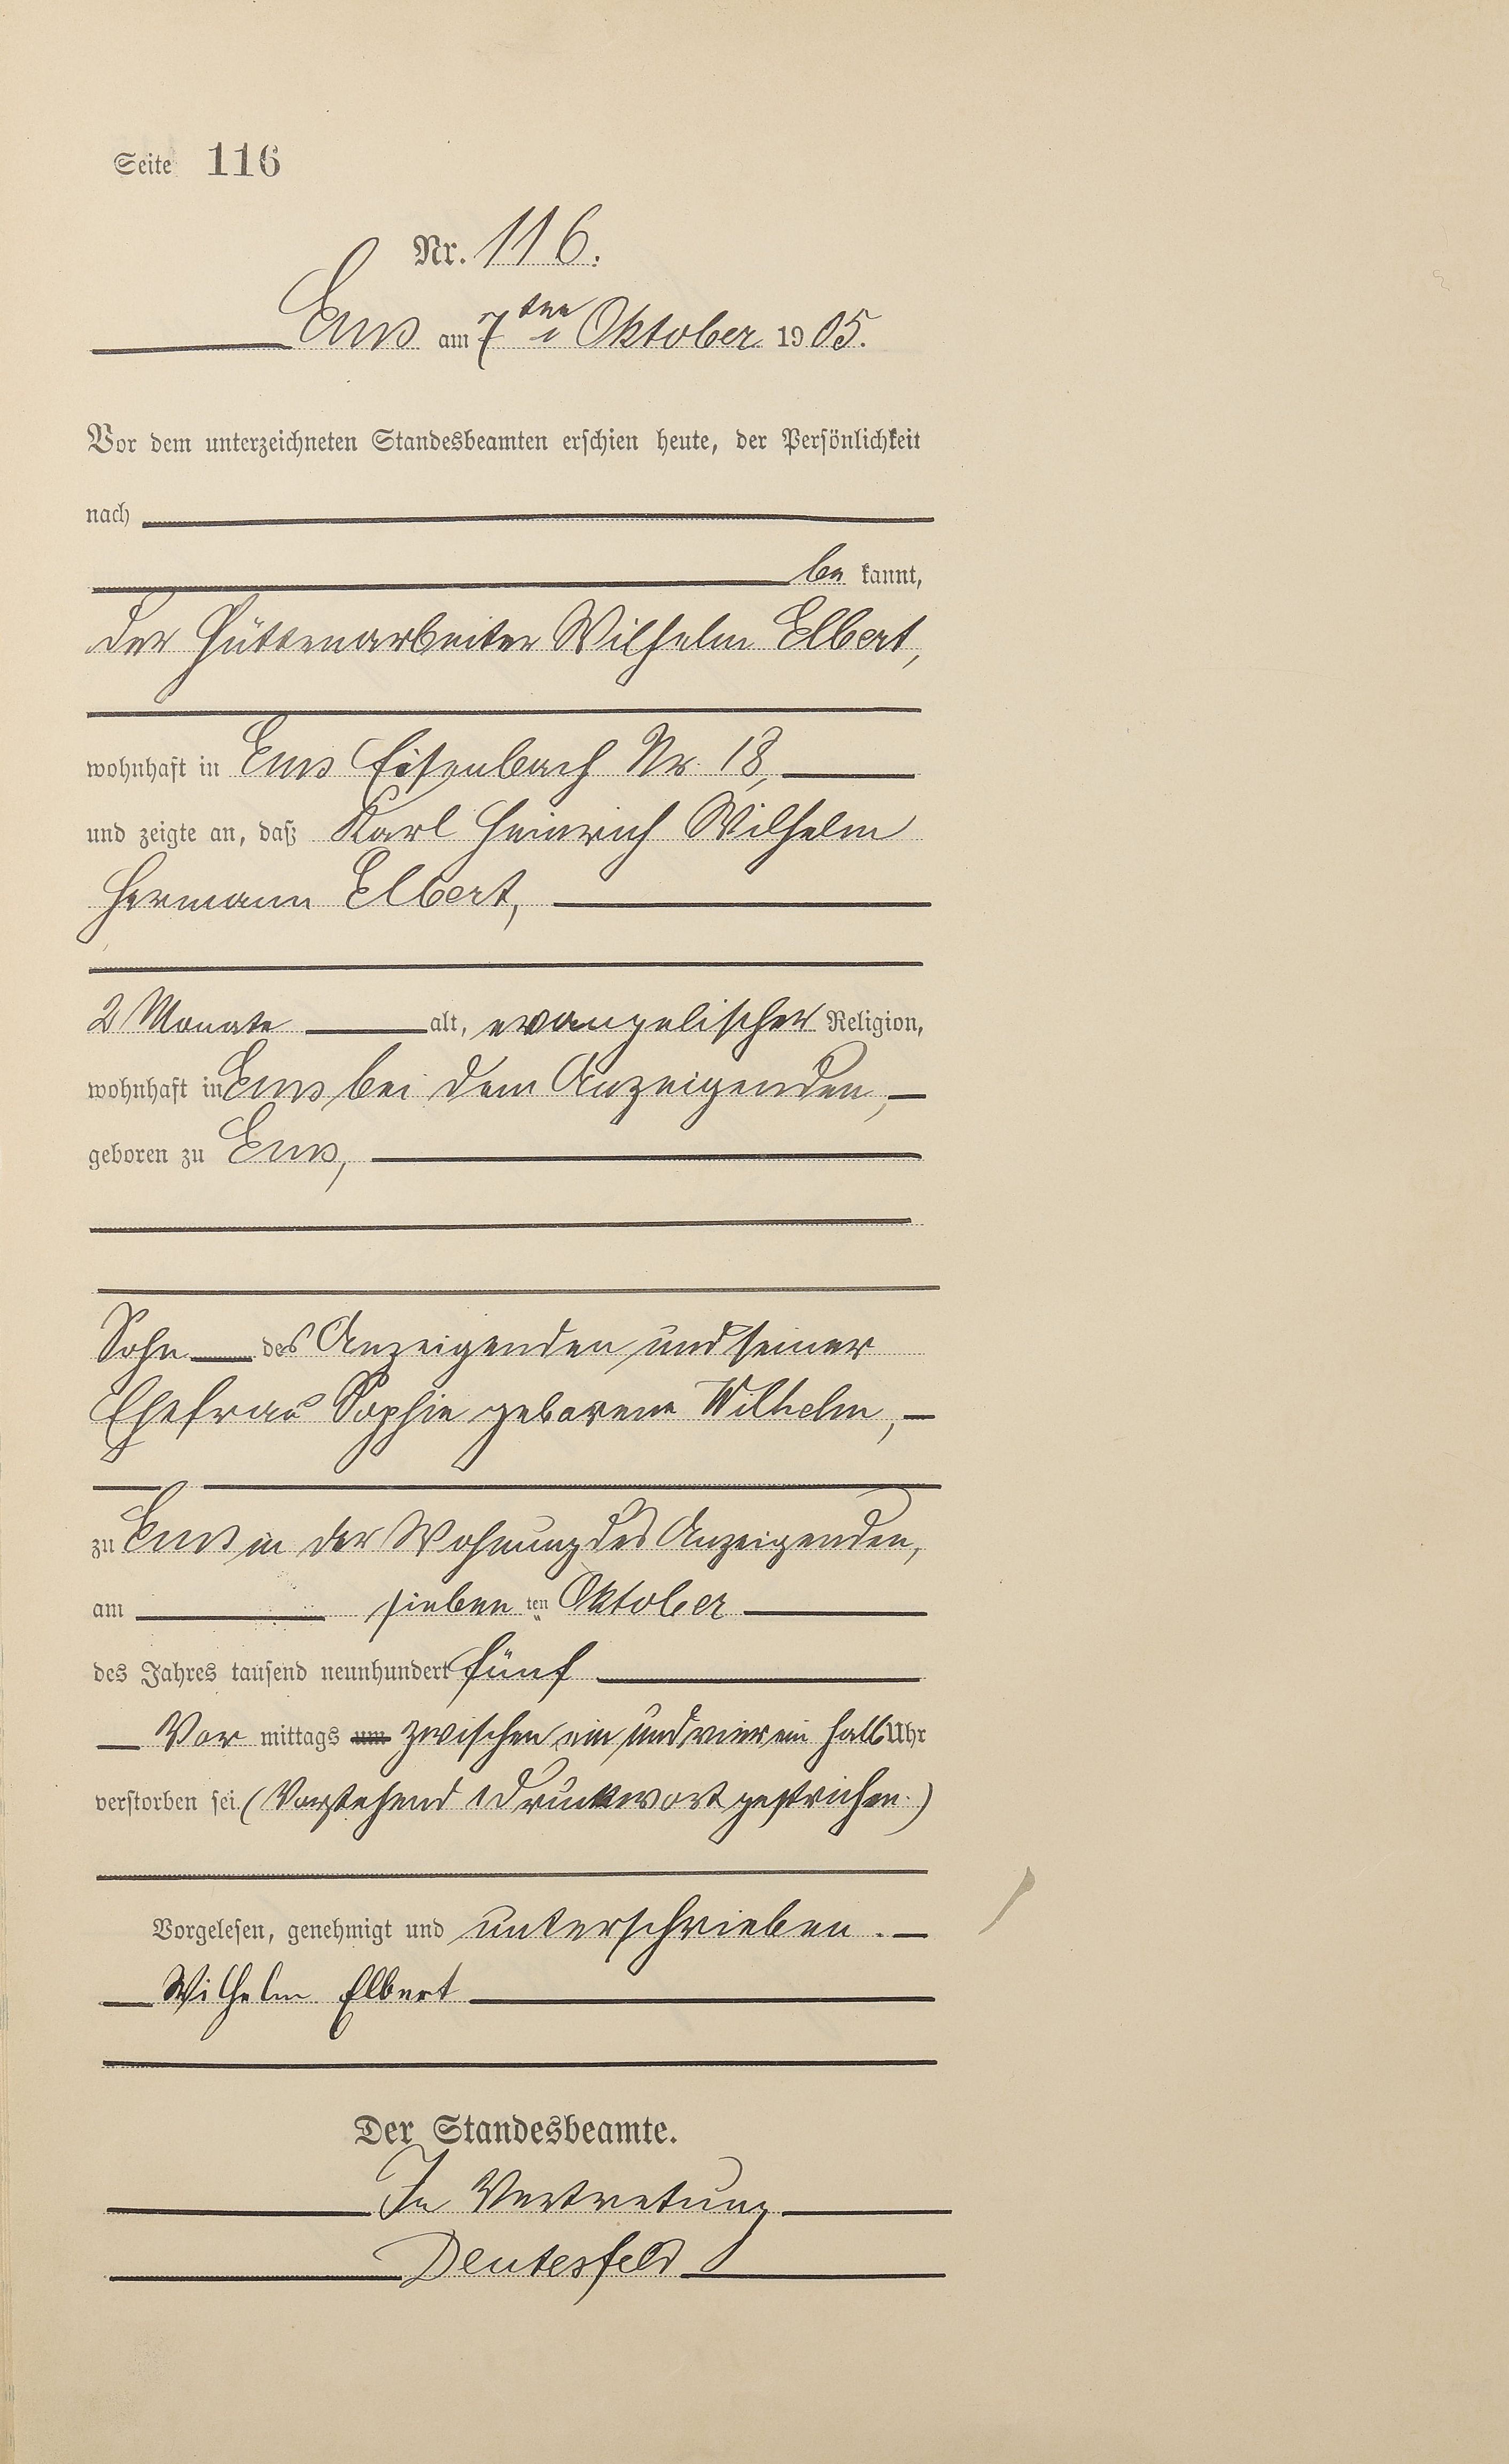 Seite 116
Nr. 116.
Ems am 7ten Oktober 1905.
Vor dem unterzeichneten Standesbeamten erschien heute, der Persönlichkeit
nach
be kannt,
der Hüttenarbeiter Wilhelm Elbert,
wohnhaft in Ems Eisenbach Nr. 18,
und zeigte an, daß Karl Heinrich Wilhelm
Hermann Elbert,
2 Monate alt, evangelischer Religion,
wohnhaft in Ems bei dem Anzeigenden,
geboren zu Ems,
Sohn des Anzeigenden und seiner
Ehefrau Sophie geborene Wilhelm,
zu Ems in der Wohnung des Anzeigenden,
am sieben ten Oktober
des Jahres tausend neunhundert fünf
Vor mittags um zwischen ein und vier ein halb Uhr
verstorben sei. (Vorstehend 1 Druckwort gestrichen.)
Vorgelesen, genehmigt und unterschrieben.
Wilhelm Elbert
Der Standesbeamte.
In Vertretung
Deutesfeld